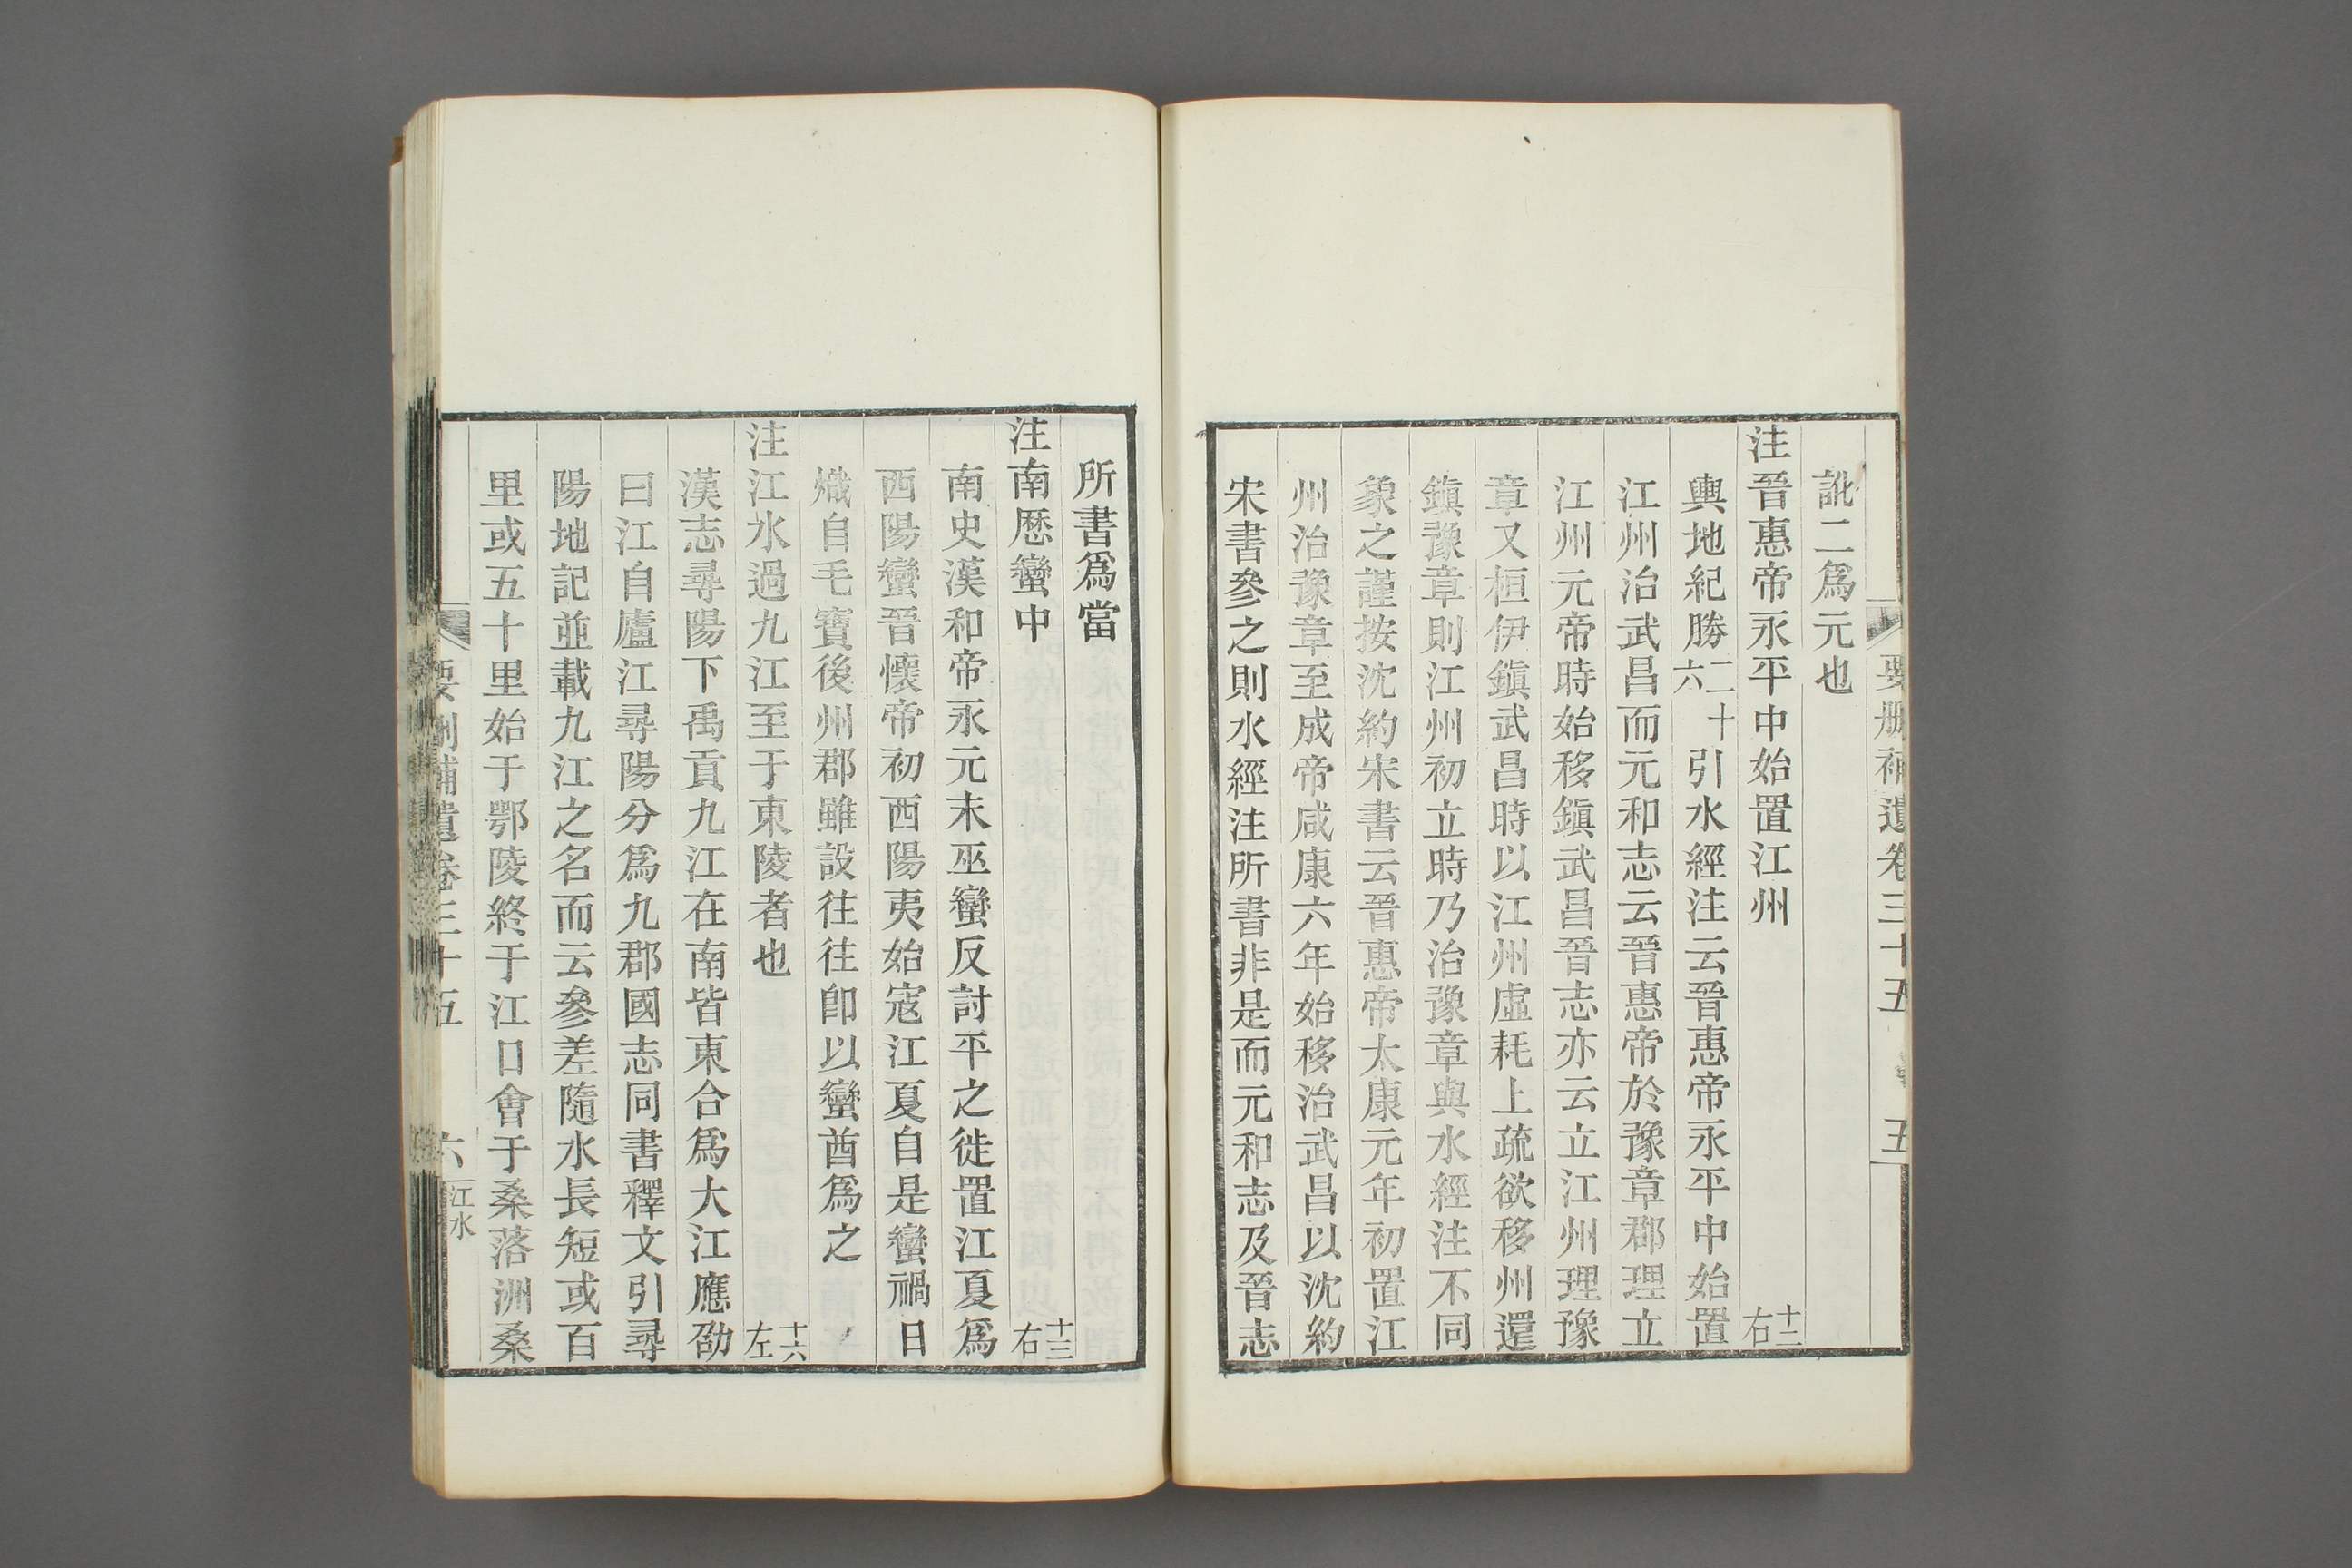 要刪補遺卷三十五 五
訛二爲元也
注晉惠帝永平中始置江州 十二右
輿地紀勝二十六引水經注云晉惠帝永平中始置
江州治武昌而元和志云晉惠帝於豫章郡理立
江州元帝時始移鎭武昌晉志亦云立江州理豫
章又桓伊鎭武昌時以江州虛耗上疏欲移州還
鎭豫章則江州初立時乃治豫章與水經注不同
象之謹按沈約宋書云晉惠帝太康元年初置江
州治豫章至成帝咸康六年始移治武昌以沈約
宋書參之則水經注所書非是而元和志及晉志
所書爲當
注南歷蠻中 十三右
南史漢和帝永元末巫蠻反討平之徙置江夏爲
西陽蠻晉懷帝初西陽夷始寇江夏自是蠻禍日
熾自毛寶後州郡雖設往往卽以蠻酋爲之
注江水過九江至于東陵者也 十六左
漢志尋陽下禹貢九江在南皆東合爲大江應劭
曰江自廬江尋陽分爲九郡國志同書釋文引尋
陽地記並載九江之名而云參差隨水長短或百
里或五十里始于鄂陵終于江口會于桑落洲桑
要刪補遺卷三十五 六 江水